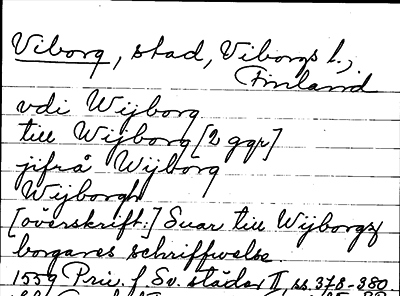 Viborg, stad, Viborgs l.,
Finland
vdi Wijborg
till Wijborg [2 ggr]
jifrå Wijborg
Wijborgh
[överskrift:] Suar till Wijborgz
borgares schriffwelse.
1559 Priv. f. Sv. städer II, ss. 378-380.